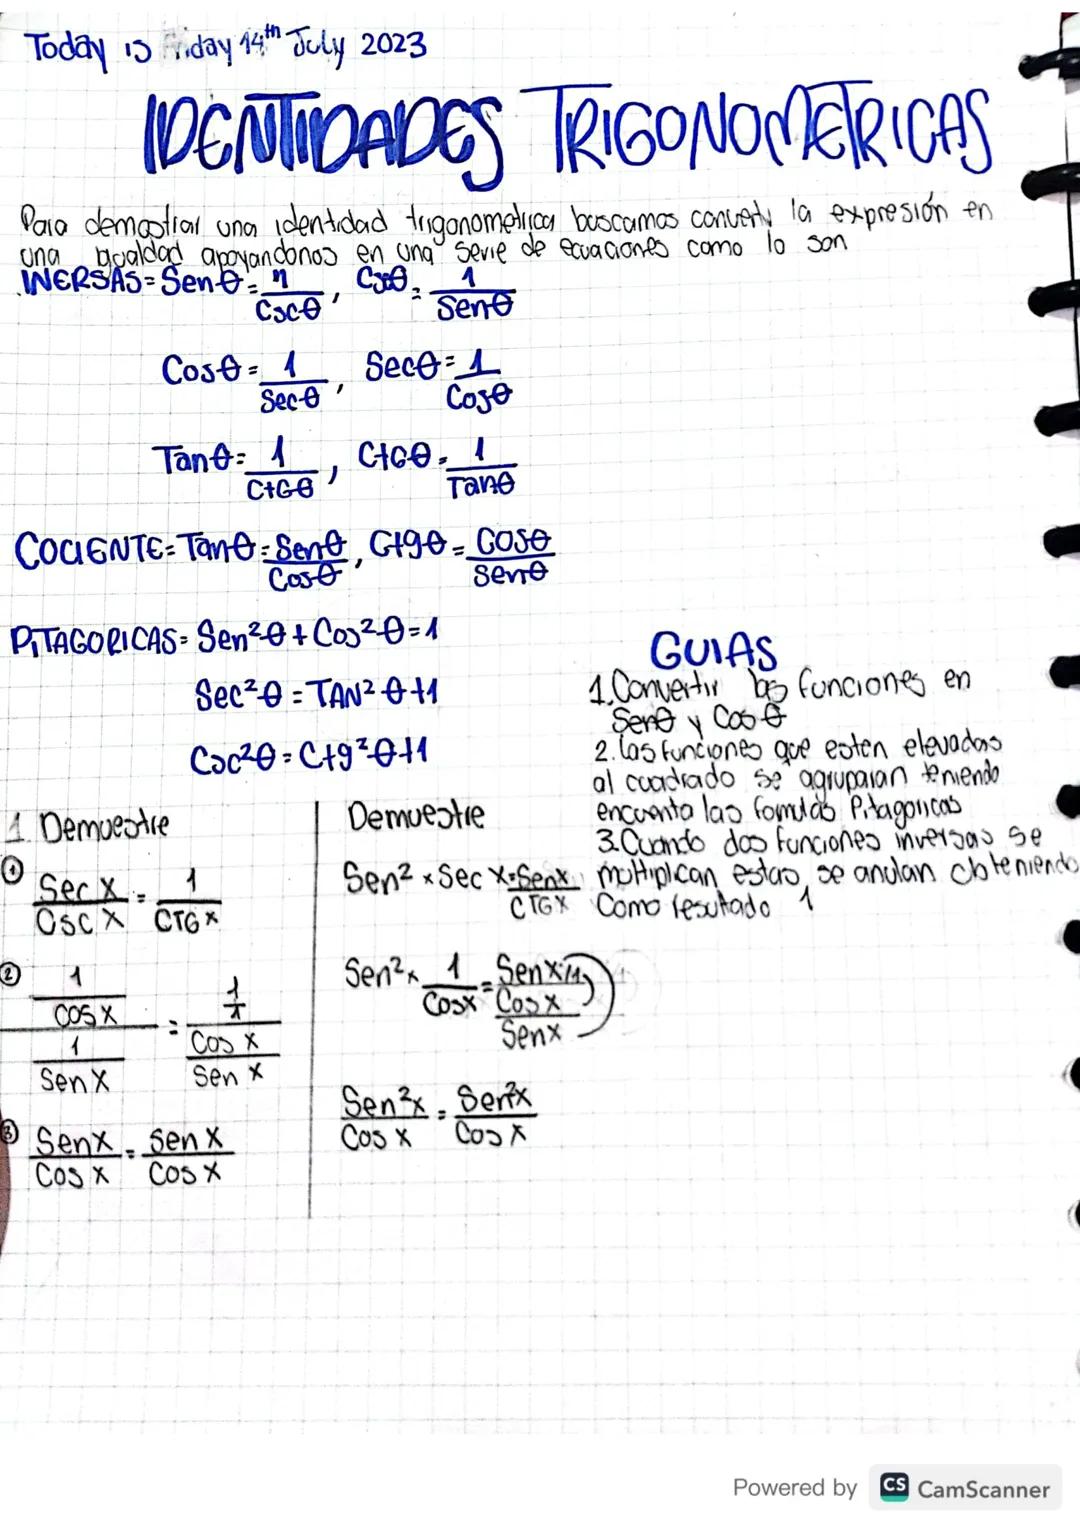 Today is Friday 14th July 2023
IDENTIDADES TRIGONOMETRICAS
Para demostrar una identidad trigonometrica buscamos convertir la expresión en
una igualdad apoyandonos en una serie de ecuaciones como lo son
INERSAS= Senθ = 1/Cscθ, Cscθ = 1/Senθ
Cosθ = 1/Secθ, Secθ = 1/Cosθ
Tanθ = 1/CtGθ, CtGθ = 1/Tanθ
COCIENTE= Tanθ = Senθ/Cosθ, Ctgθ = Cosθ/Senθ
PITAGORICAS= Sen²θ + Cos²θ = 1
Sec²θ = TAN²θ+1
Csc²θ = Ctg²θ+1
GUIAS
1. Convertir las funciones en
Senθ y Cosθ
2. las funciones que esten elevadas
al cuadrado se agruparan teniendo
encuenta las formulas Pitagoricas
3. Cuando dos funciones inversas se
multiplican estas se anulan obteniendo
Como resutado 1
1. Demuestre
① Sec X/Csc X = 1/CTG x
② (1/cos x)/(1/Sen X) = (1/1)/(Cos x/Sen x)
③ Senx/Cos x = Sen x/Cos x
Demuestre
Sen² x Sec X = Senx/CTGX
Sen²x 1/Cosx = (Senx/1)/(Cos x/Senx)
Sen²x/Cos x = Sen²x/Cos x
Powered by CS CamScanner